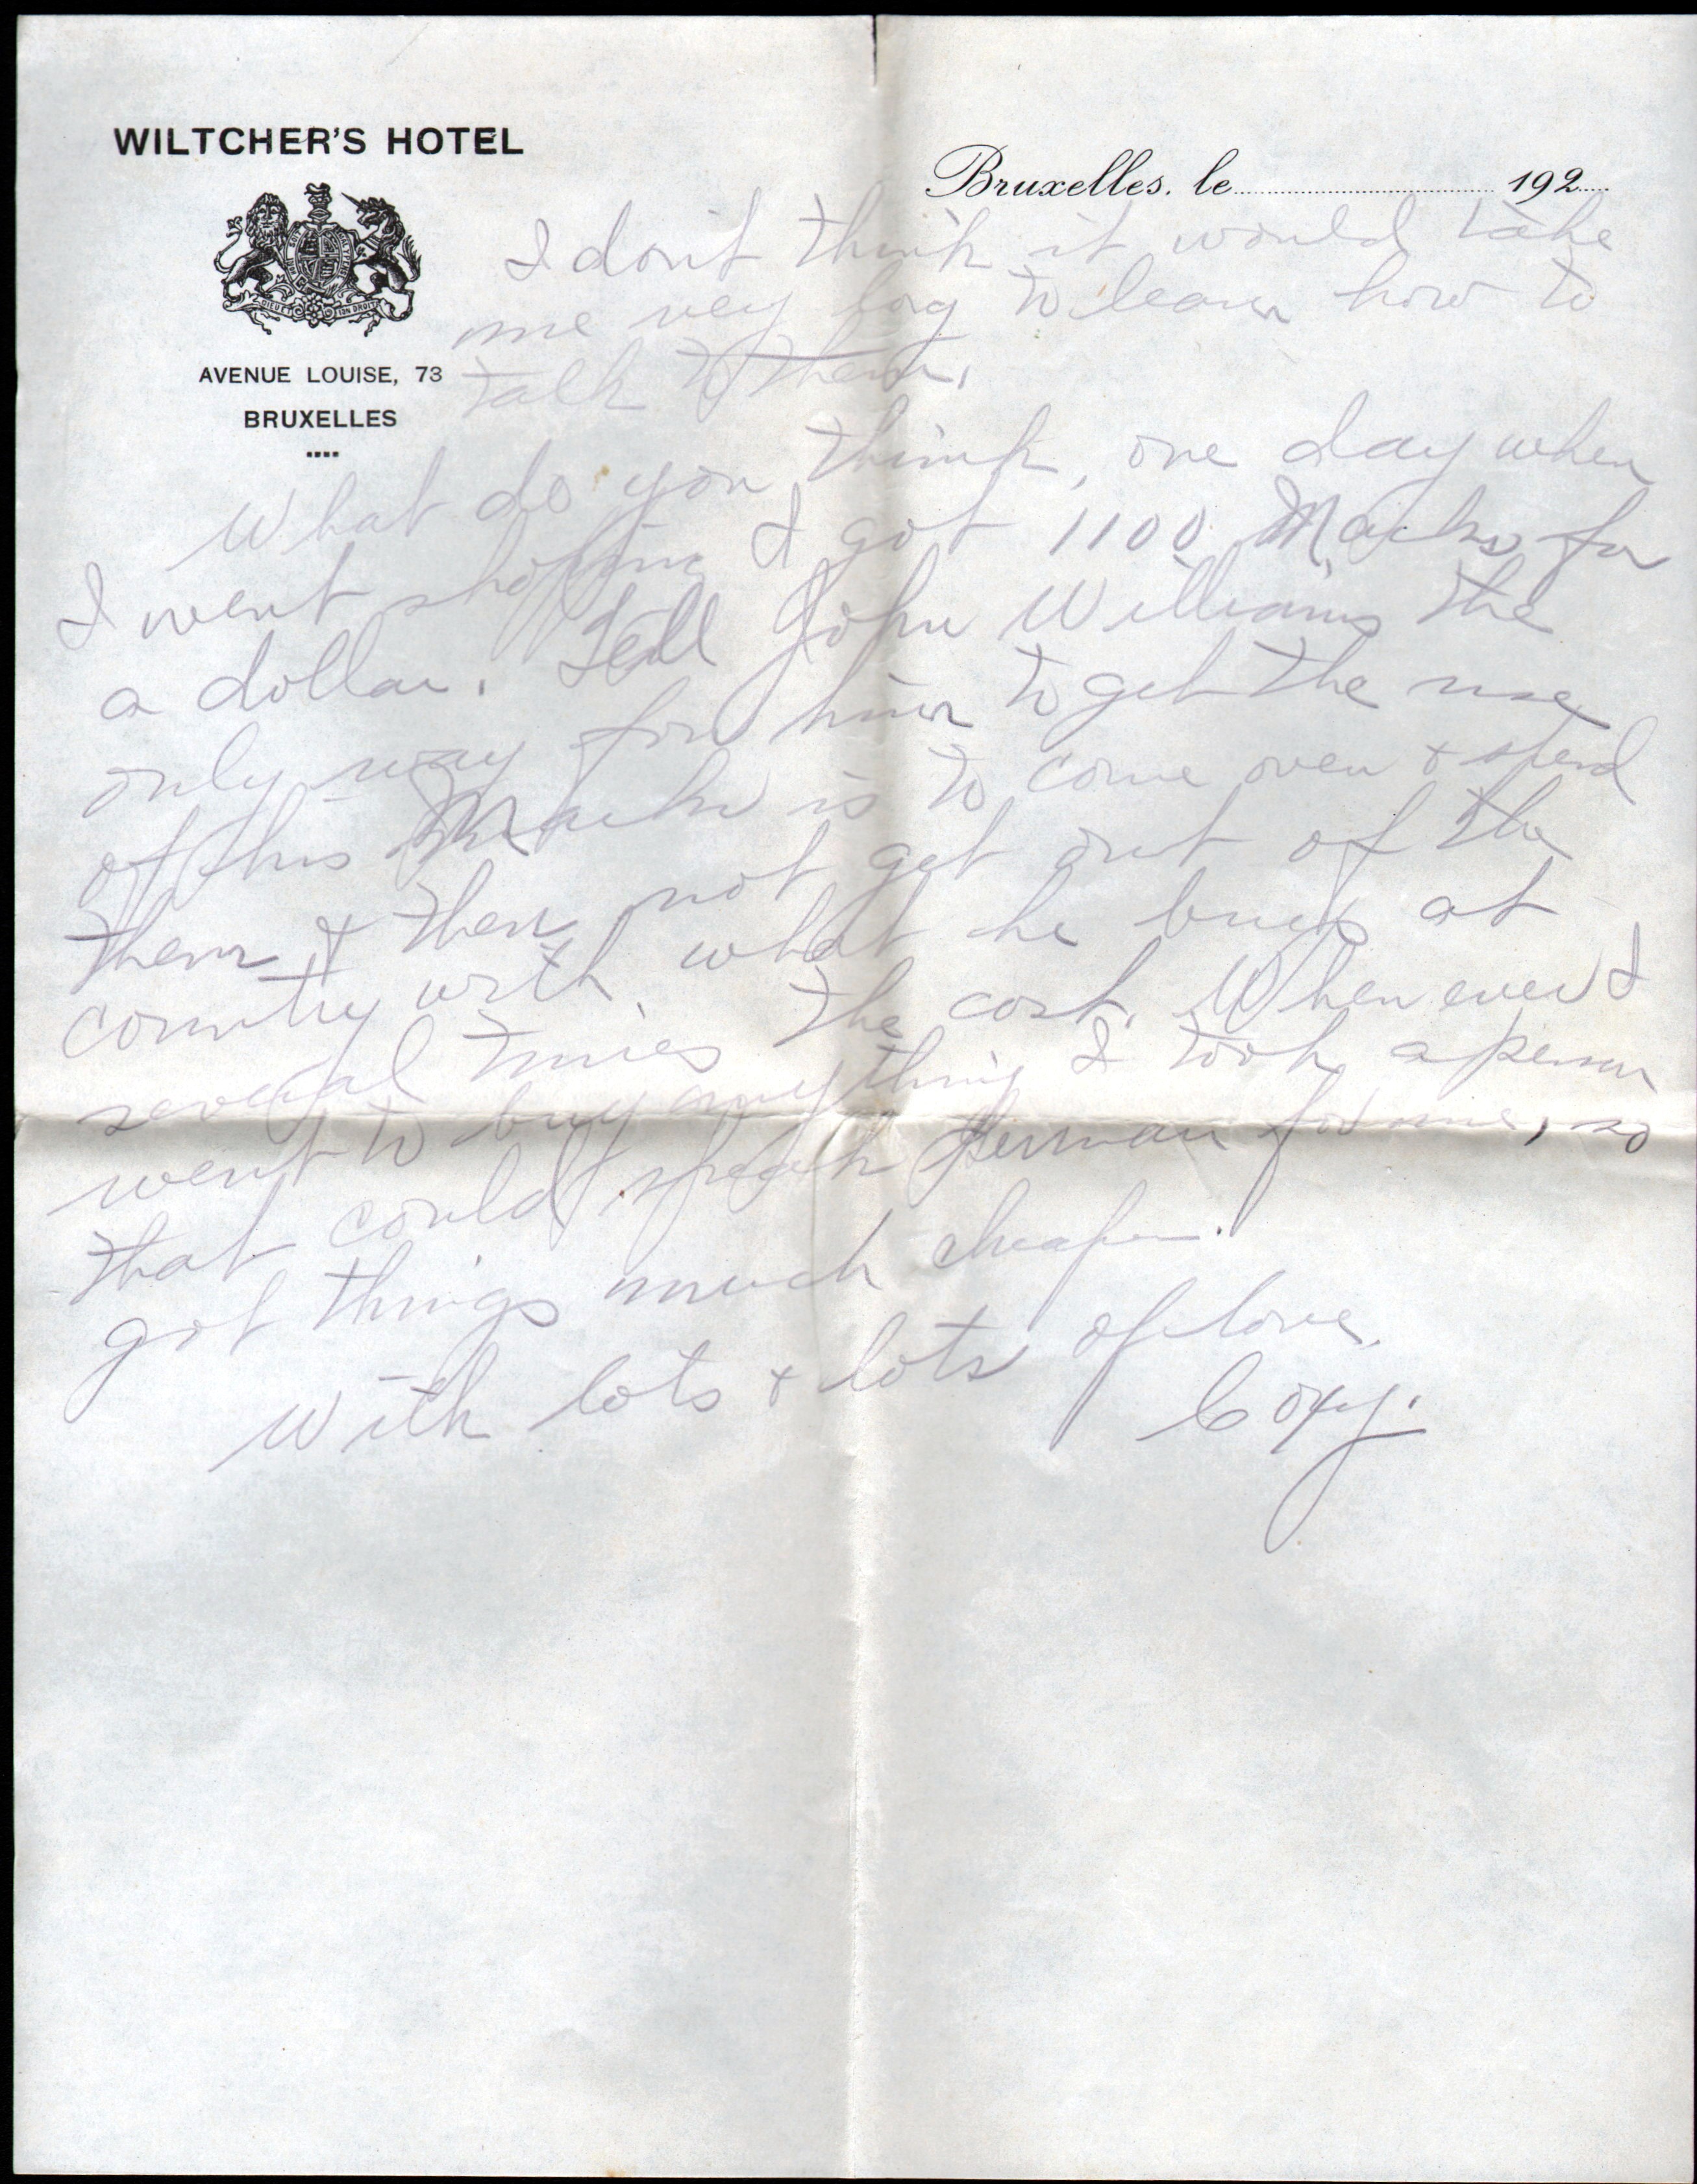 WILTCHER'S HOTEL
Bruxelles. le 192
DIEU ET MON DROIT
AVENUE LOUISE, 73
BRUXELLES
I don't think it would take
me very long to learn how to
talk to them.
What do you think, one day when
I went shopping I got 1100 Marks for
a dollar. Tell John Williams the
only way for him to get the use
of his Marks is to come over & spend
them & then not get out of the
country with what he buys at
several times the cost. When ever I
went to buy anything I took a person
that could speak German for me, so
got things much cheaper.
With lots & lots of love,
Coxy.